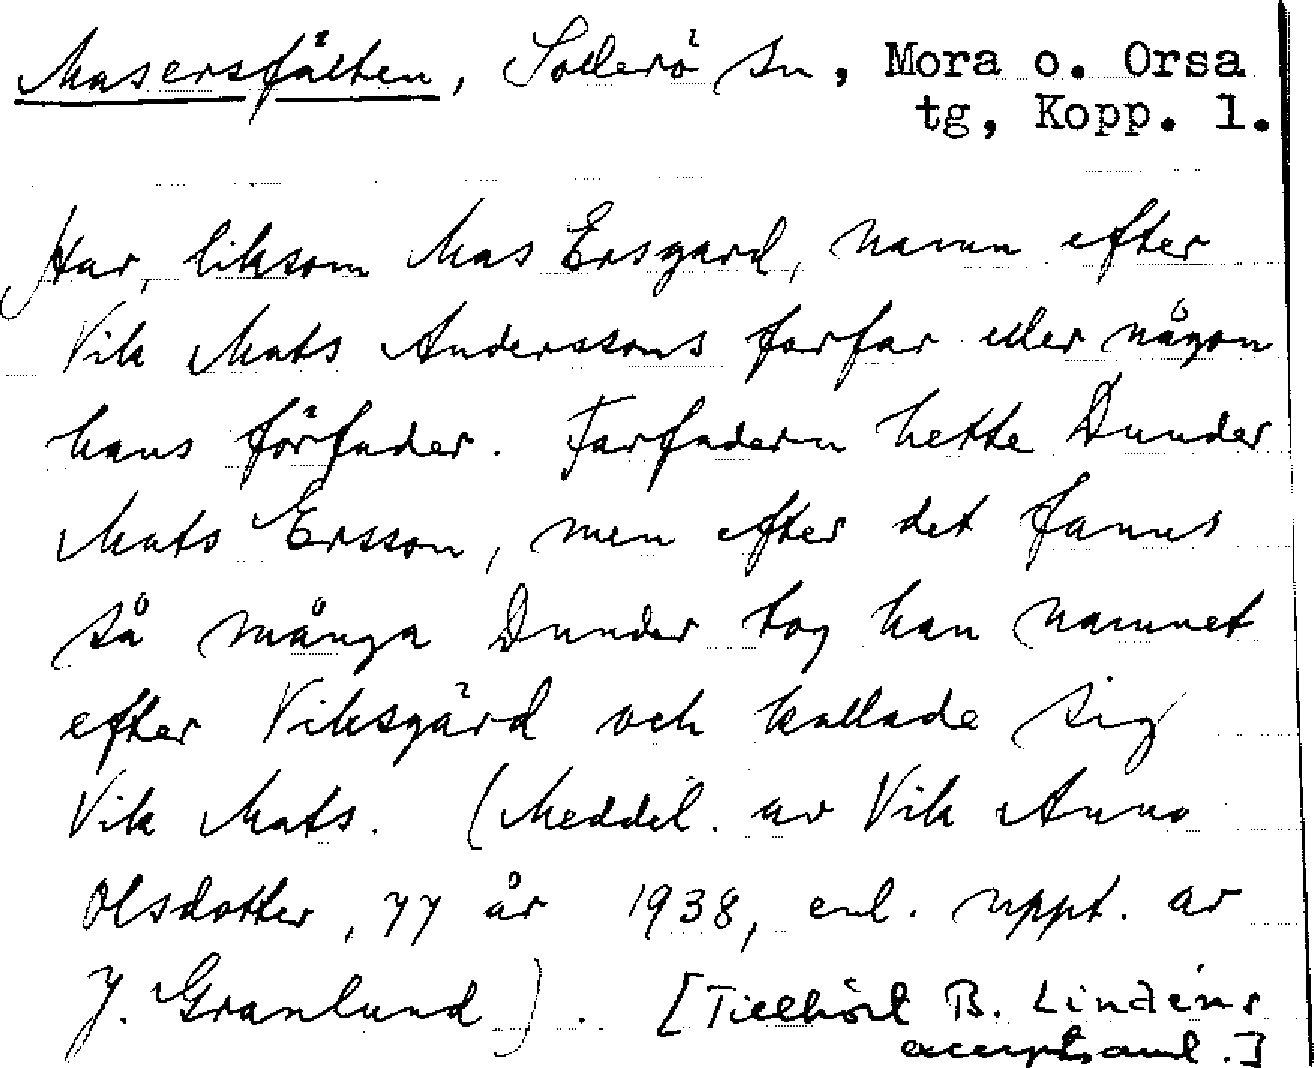 Masersfälten, Sollerö sn, Mora o. Orsa
tg, Kopp. l.
Har, liksom Mas Ersgard, namn efter
Vik Mats Anderssons farfar eller någon
hans förfader. Farfadern hette Dunder
Mats Ersson, men efter det fanns
så många Dunder tog han namnet
efter Viksgärd och kallade sig
Vik Mats. (Meddel. av Vik Anna
Olsdotter, 77 år 1938, enl. uppt. av
J. Granlund). [Tillhört B. Lindéns
excerptsaml.]